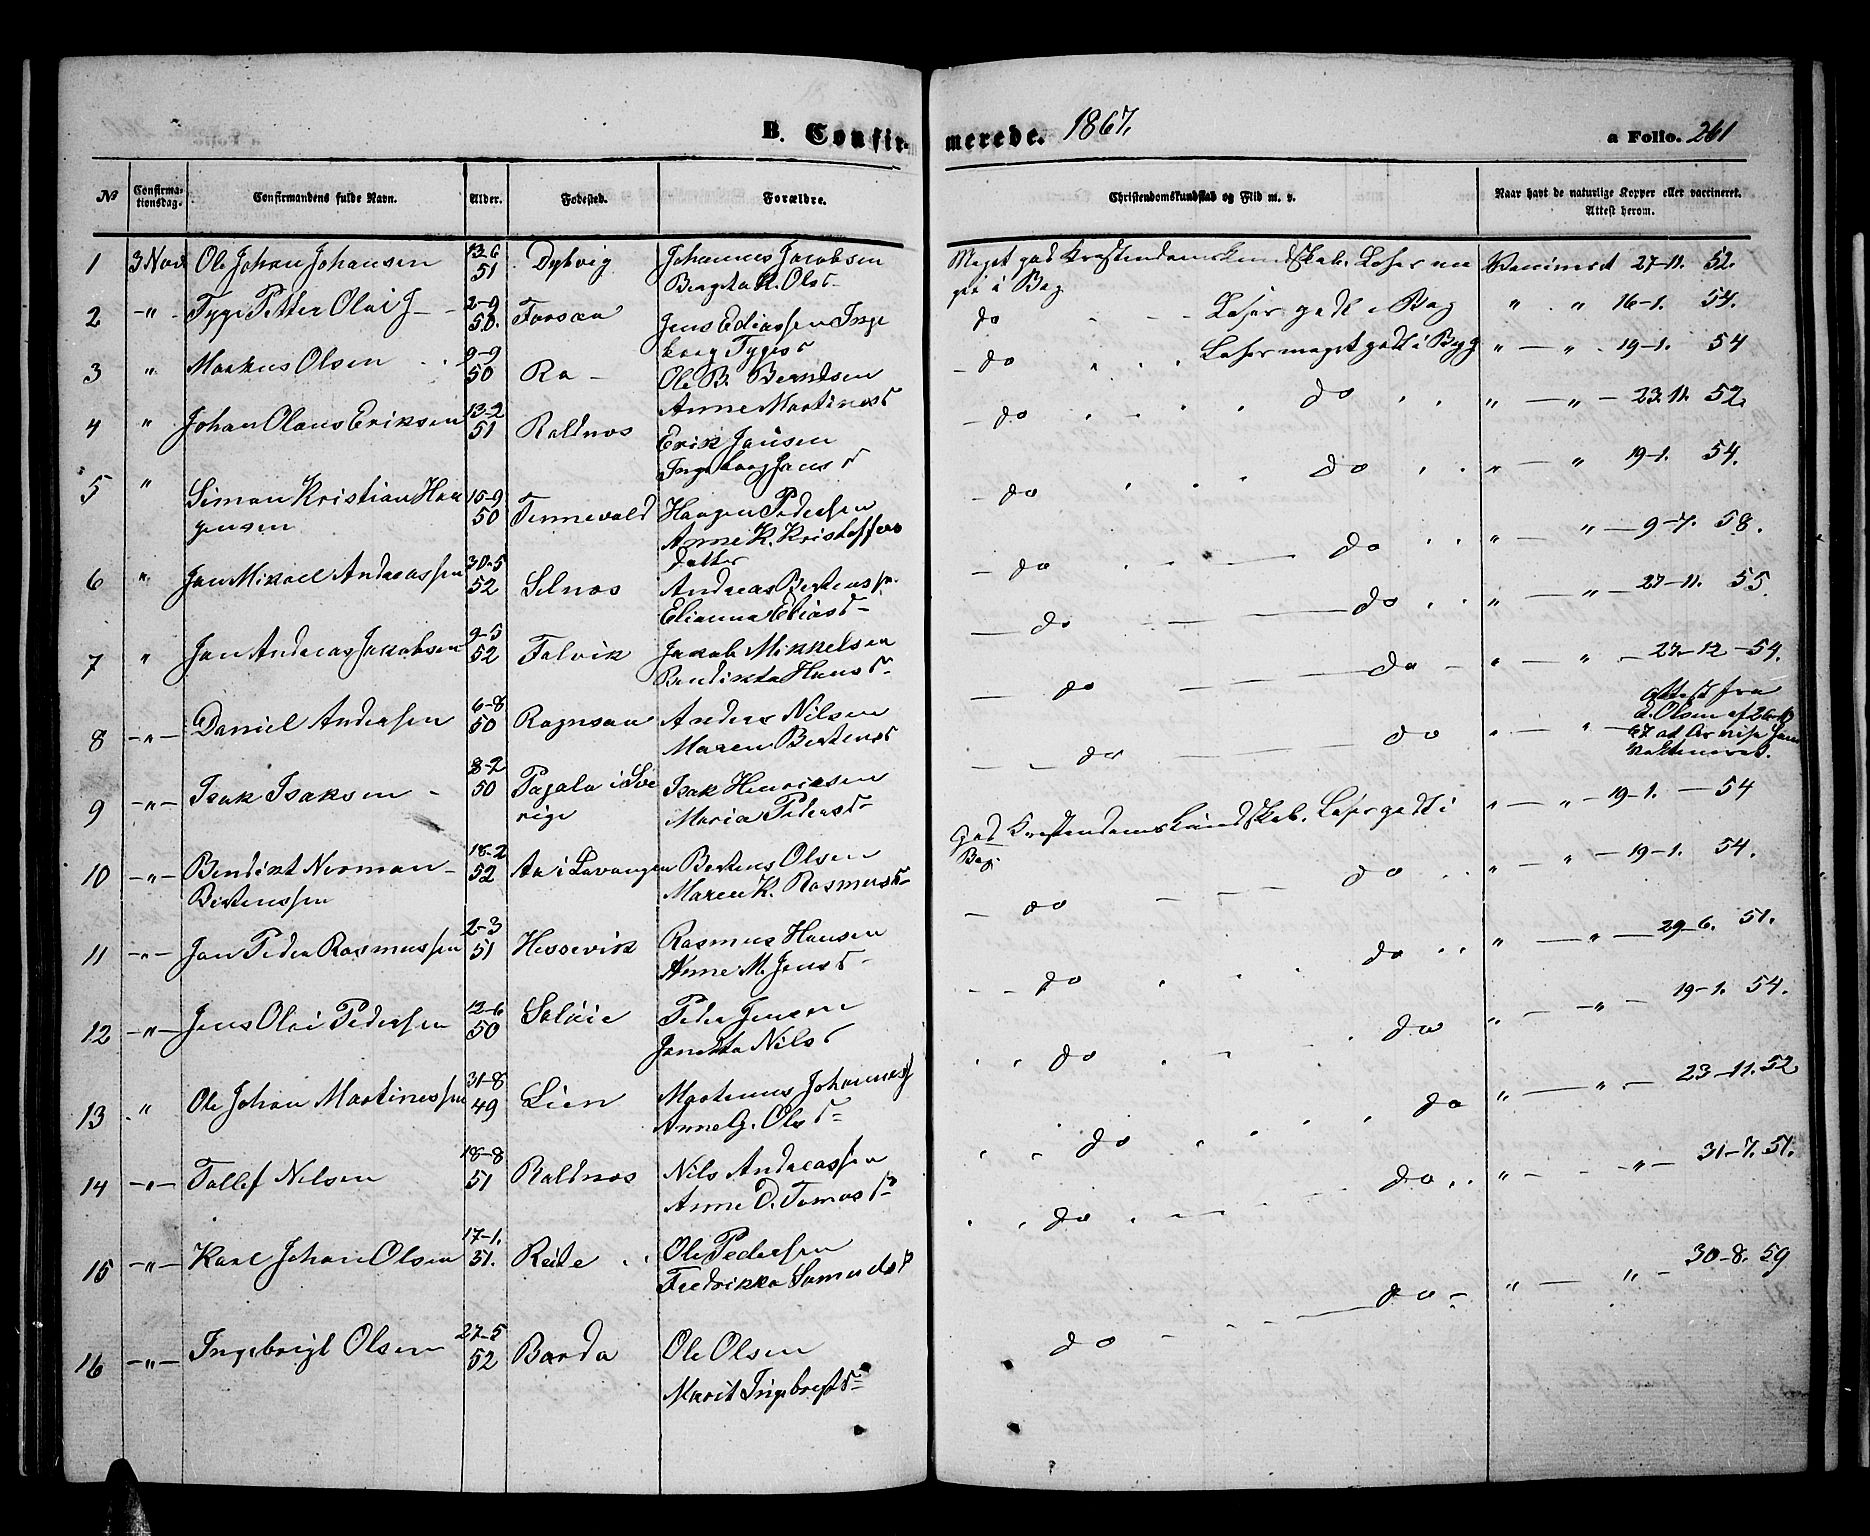 B. Confirmerede. 1867. a Folio. 261
№ Confirmationsdag. Confirmandens fulde Navn. Alder. Fødested. Forældre. Christendomskundskab og Flid m. v. Naar havt de naturlige Kopper eller vaccineret. Attest herom.
1 3 Nov Ole Johan Johansen 13-6 Dybvig Johannes Jacobsen Meget god Kristendomskundskab. Læser me Vaccineret 27-11. 52.
51 Bergita K. Olsd- get i Bog
2 -"- Tyge Petter Olai J- 2-9 Forsaa Jens Ediassen Inge do Læser godt i Bog " " 16-1. 54.
50. borg Tygesd
3 " Markus Olsen 9-9 Ra- Ole B. Berntsen - do Læser meget godt i Bog " - " 19-1. 54
50 Anne Martinesd
4 " Johan Olaus Eriksen 13-2 Roldnes Erik Jansen - do do " - " - 23-11. 52.
51 Ingeborg Jansd
5 " Simon Kristian Haa 15-9 Tennevold Haagen Pedersen - do do " - " 19-1. 54.
gensen 50 Anne K. Kristoffers
datter
6 " Jan Mikael Andreassen 30-5 Selnes Andreas Bertenss. - do do " - " - 9-7. 58.
52 Elianna Eliasd-
7 " Jan Andreas Jakobsen 9-5 Falvik Jakob Mikkelsen - do do " - " - 27-11. 55.
52 Bendikta Hansd-
8 -"- Daniel Andersen 6-8 Rognsaa Anders Nilsen - do do - " - " - 27-12-54.
50 Maren Bertensd
9 -"- Isak Isaksen - 8-2 Pajala i Sve Isak Henriksen - do do " " Attest fra
50 rige Maria Pedersd-
10 -"- Bendikt Norman- 18-2 Aa i Lavangen Bertens Olsen god Kristendomskundskab. Læser godt i " - " - 19-1. - 54
Bertenssen 52 Maren K. Rasmusd- Bog.
11 -"- Jan Peder Rasmussen 2-3 Hessevik Rasmus Hansen - do - do " - " - 19-1. 54.
51 Anne M. Jensd-
12 -"- Jens Olai Pedersen 12-6 Salöie Peder Jensen - - do do " - " - 29-6. 51.
50 Janetta Nilsd
13 " Ole Johan Martinussen 31-8 Lien Martinus Johannes do do " -"- 19-1. 54.
49 Anne G. Olsd-
14 -"- Tollef Nilsen 18-8 Roldnes Nils Andreassen do do " - " - 23-11. 52
51 Anne D. Tomasd-
15 -"- Karl Johan Olsen 17-1. Reite Ole Pedersen do do " - - -"- 31-7. 51.
51. Fredrikka Samuelsd
16 -"- Ingebrigt Olsen 27-5 Bardo Ole Olsen do do - " - " - 30-8. 59
52 Marit Ingebrigtsd-